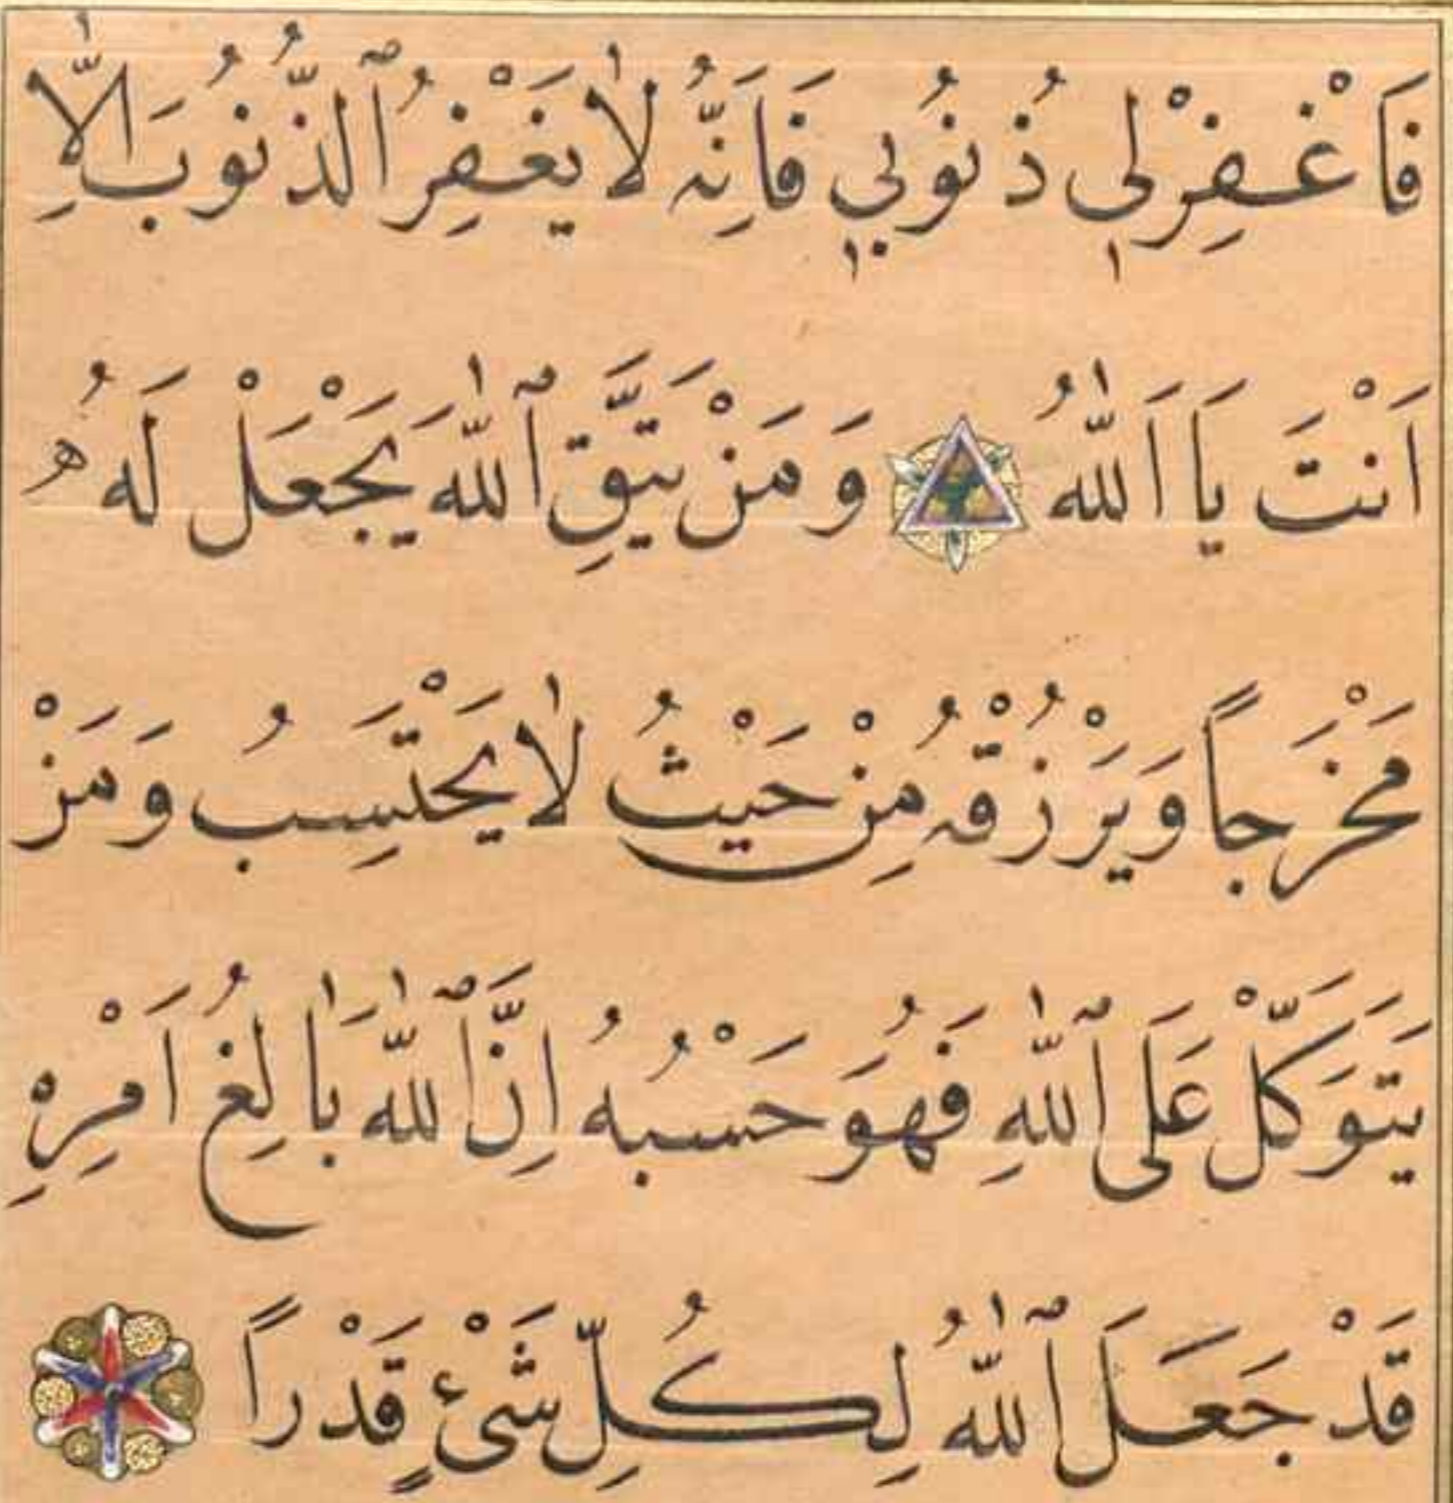 فَاغْفِرْ لِي ذُنُوبِي فَاِنَّهُ لَا يَغْفِرُ ٱلذُّنُوبَ اِلَّا
اَنْتَ يَا اَللّٰهُ وَمَنْ يَتَّقِ ٱللّٰهَ يَجْعَلْ لَهُ
مَخْرَجاً وَيَرْزُقْهُ مِنْ حَيْثُ لَا يَحْتَسِبُ وَمَنْ
يَتَوَكَّلْ عَلَى ٱللّٰهِ فَهُوَ حَسْبُهُ اِنَّ ٱللّٰهَ بَالِغُ اَمْرِهِ
قَدْ جَعَلَ ٱللّٰهُ لِكُلِّ شَيْءٍ قَدْراً